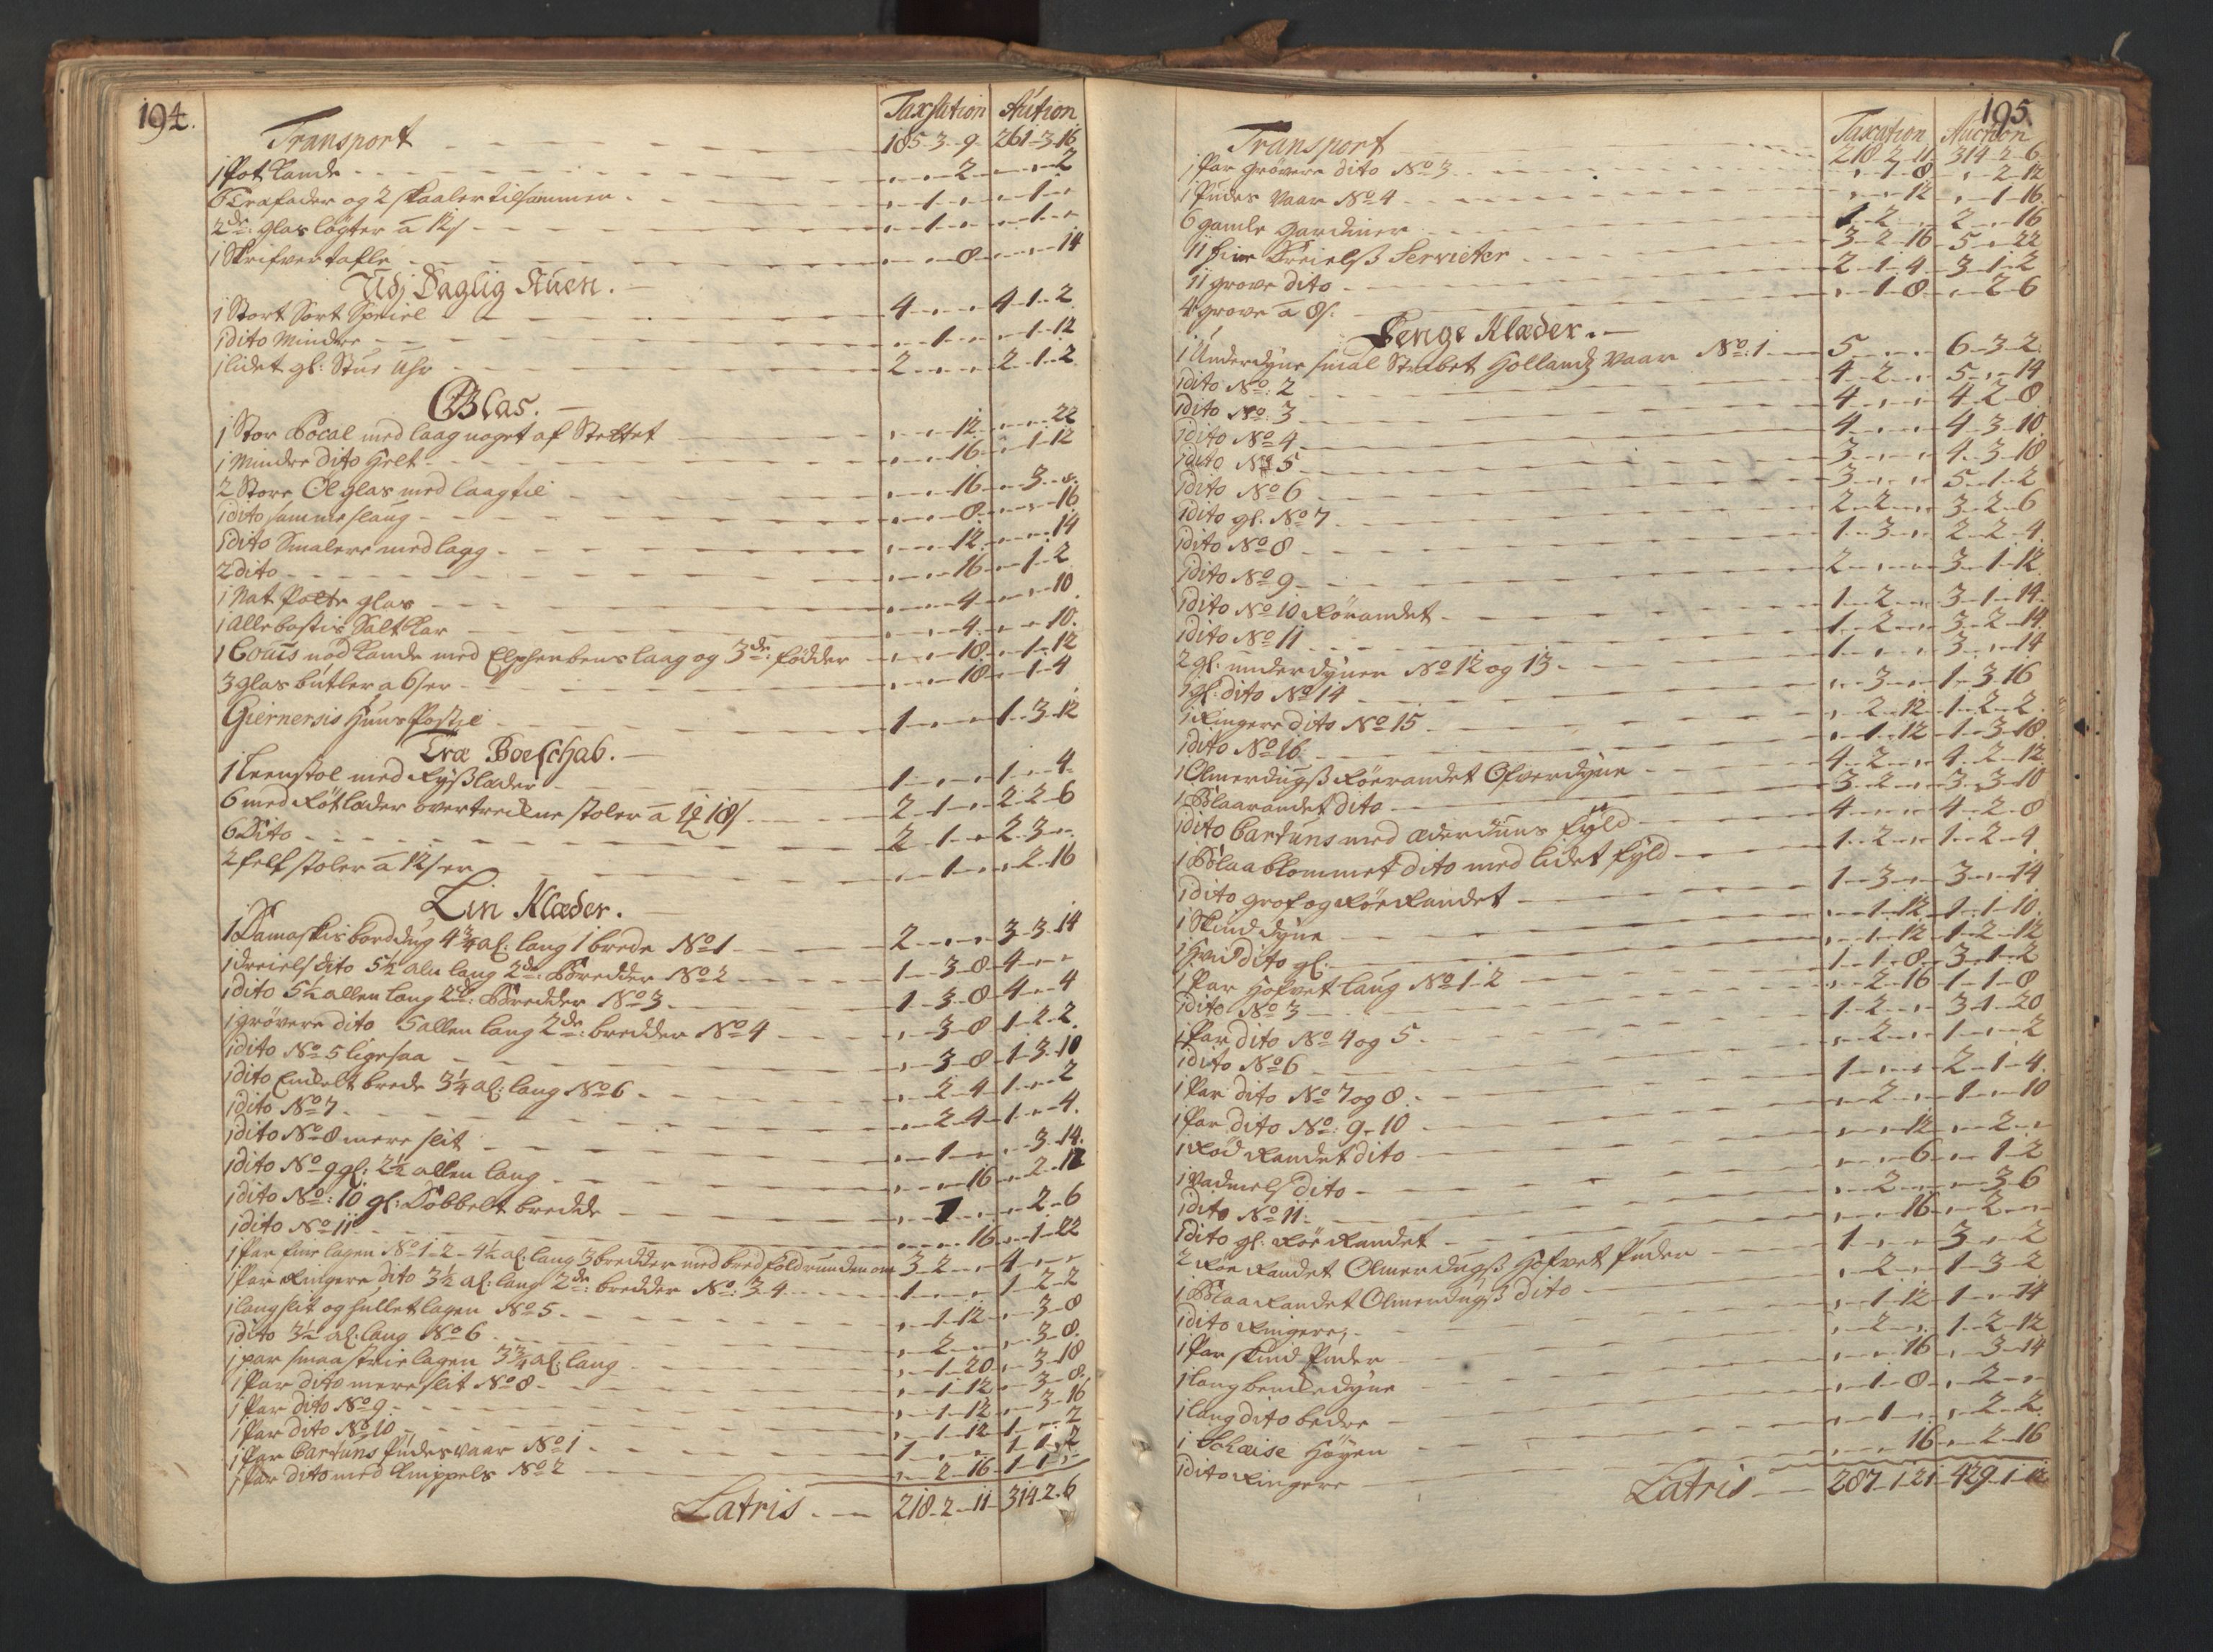 194.
Taxsation Aution
Transport 185-3-9 261-3-16
1 Pot Kande 2 2
6 Træfader og 2 skaaler tilsammen 1 1
2de: glas løgter a 12 s 1 1
1 Skrifvertafle 8 14
Udj Daglig Stuen.
1 Stort Sort Speiel 4 4-1-2
1 dito Mindre 1 1-12
1 lidet gl: Stue Uhr 2 2-1-2
Glas.
1 Stor Pocal med laag noget af Stettet 12 22
1 Mindre dito Helt 16 1-12
2 Store Øl glas med laag til 16 3-8
1 dito samme slaug 8 16
1 dito Smalere med lagg 12 14
2 dito 16 1-2
1 Nat Potte glas 4 10
1 Allebastis Salt Kar 4 10
1 Couis nød Kande med Elphenbens laag og 3de: fødder 18 1-12
3 glas butler a 6 s er 18 1-4
Giernersis Huus Postje 1 1-3-12
Træ Boeschab.
1 Leenstol med Ryslæder 1 1-4
6 med Røtlæder overtrekne stoler a 1 18 s 2-1 2-2-6
6 Dito 2-1 2-3
2 felt stoler a 12 s er 1 2-16
Lin Klæder.
1 Damaskis borddug 4 3/4 al: lang 1 brede No 1 2 3-3-14
1 dreiels dito 5 1/2 aln lang 2de: Bredder No 2 1-3-8 4
1 dito 5 1/2 allen lang 2de: Bredder No 3 1-3-8 4-4
1 grøvere dito 5 allen lang 2de: bredder No 4 3-8 1-2-2
1 dito No 5 ligesaa 3-8 1-3-10
1 dito Enkelt brede 3 1/4 al: lang No 6 2-4 1-2
1 dito No 7 2-4 1-4
1 dito No 8 mere slit 1 3-14
1 dito No 9 gl: 2 1/2 allen lang 16 2-12
1 dito No: 10 gl: Dobbelt bredde 1 2-6
1 dito No 11 16 1-22
1 Par fine lagen No 1-2-4 1/2 al: lang 3 bredder med bred fold runden om 3-2 4
1 Par Ringere dito 3 1/2 al: lang 2de: bredder No: 3-4 1 1-2-2
1 lang slit og hullet lagen No 5 1-12 3-8
1 dito 3 1/2 al: lang No 6 2 3-8
1 par smaa strie lagen 3 3/4 al: lang 1-20 3-18
1 Par dito mere slit No 8 1-12 3-8
1 Par dito No 9 1-12 3-16
1 Par dito No 10 1-12 1-2
1 Par Cartuns Pudesvaar No 1 1 1-1-2
1 Par dito med Knippels No 2 2-16 1-1
Latris 218-2-11 314-2-6
195.
Taxation Auction
Transport 218-2-11 314-2-6
1 Par grøvere dito No 3 1-8 2-12
1 Pudes Vaar No 4 12 1-16
6 gamle gardiner 1-2 2-16
11 fine Dreiels Servieter 3-2-16 5-22
11 grove dito 2-1-4 3-1-2
4 grove a 8 s. 1-8 2-6
Senge Klæder.
1 Underdyne smal Strebet Hollandz Vaar No: 1 5 6-3-2
1 dito No: 2 4-2 5-14
1 dito No: 3 4 4-2-8
1 dito No 4 4 4-3-10
1 dito No 5 3 4-3-18
1 dito No 6 3 5-1-2
1 dito gl: No 7 2-2 3-2-6
1 dito No 8 1-3 2-2-4
1 dito No 9 2 3-1-12
1 dito No 10 Rørandet 1-2 3-1-14
1 dito No 11 1-2 3-2-14
2 gl: underdyner No 12 og 13 1 3-14
1 gl: dito No 14 3 1-3-16
1 Ringere dito No 15 2-12 1-2-2
1 dito No 16 1-12 1-3-18
1 Olmerdugs Rørandet Ofverdyne 4-2 4-2-12
1 Blaarandet dito 3-2 3-3-10
1 dito Cartuns med ederduns fyld 4 4-2-8
1 Blaa blommet dito med lidet fyld 1-2 1-2-4
1 dito grof og Rør Randet 1-3 3-14
1 Skind dyne 1-12 1-1-10
1 Hvid dito gl: 1-12 1-2-12
1 Par Hofvet laug No 1-2 1-1-8 3-1-2
1 dito No 3 2-16 1-1-8
1 Par dito No 4 og 5 1-2 3-1-20
1 dito No 6 2 1-2
1 Par dito No 7 og 8 1 2-1-4
1 Par dito No: 9-10 2 1-10
1 Rød Randet dito 12 2
1 Vadmels dito 6 1-2
1 dito No 11 2 3-6
1 dito gl: Rør Randet 16 2
2 Rør Randet Olmerdugs Hofvet Puder 1 3-2
1 Blaa Randet Olmerdugs dito 2 1-3-2
1 dito Ringere, 1-12 1-14
1 Par skind Puder 2 1-2-12
1 lang benkedyne 16 3-14
1 lang dito bedre 1-8 2
1 Schæise Høyen 1 2-2
1 dito Ringere 16 2-16
Latris 287-1-21 429-1-12